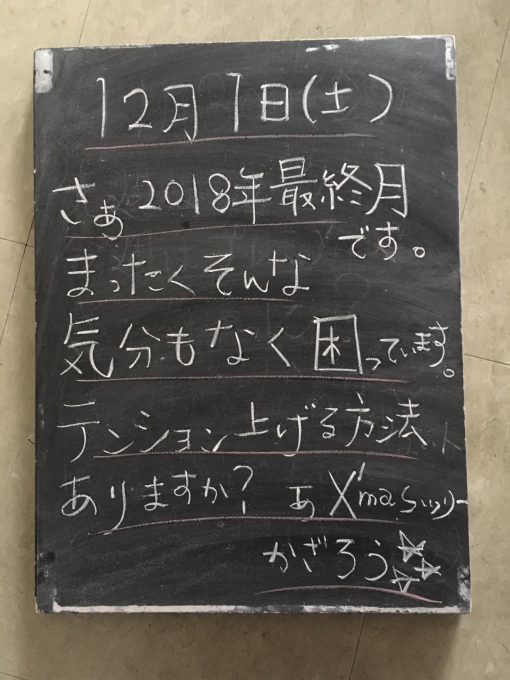 12月1日(土)
さぁ2018年最終月
です。
まったくそんな
気分もなく困っています。
テンション上げる方法
ありますか? あX'masツリー
かざろう☆☆☆